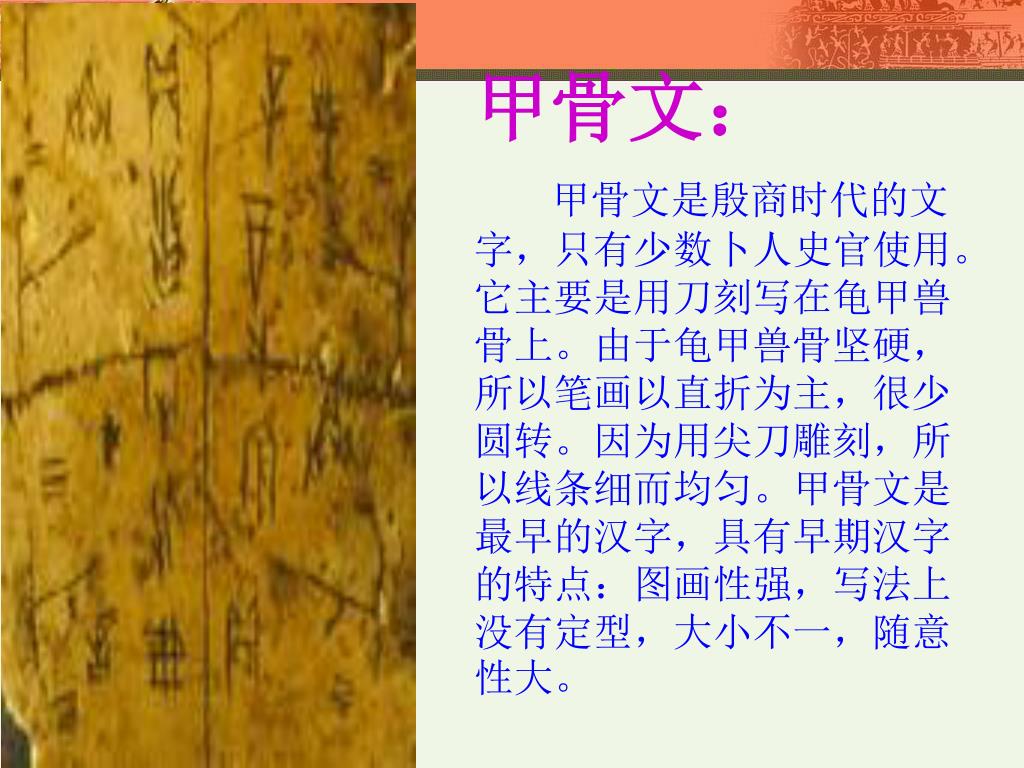 甲骨文：
甲骨文是殷商时代的文
字，只有少数卜人史官使用。
它主要是用刀刻写在龟甲兽
骨上。由于龟甲兽骨坚硬，
所以笔画以直折为主，很少
圆转。因为用尖刀雕刻，所
以线条细而均匀。甲骨文是
最早的汉字，具有早期汉字
的特点：图画性强，写法上
没有定型，大小不一，随意
性大。